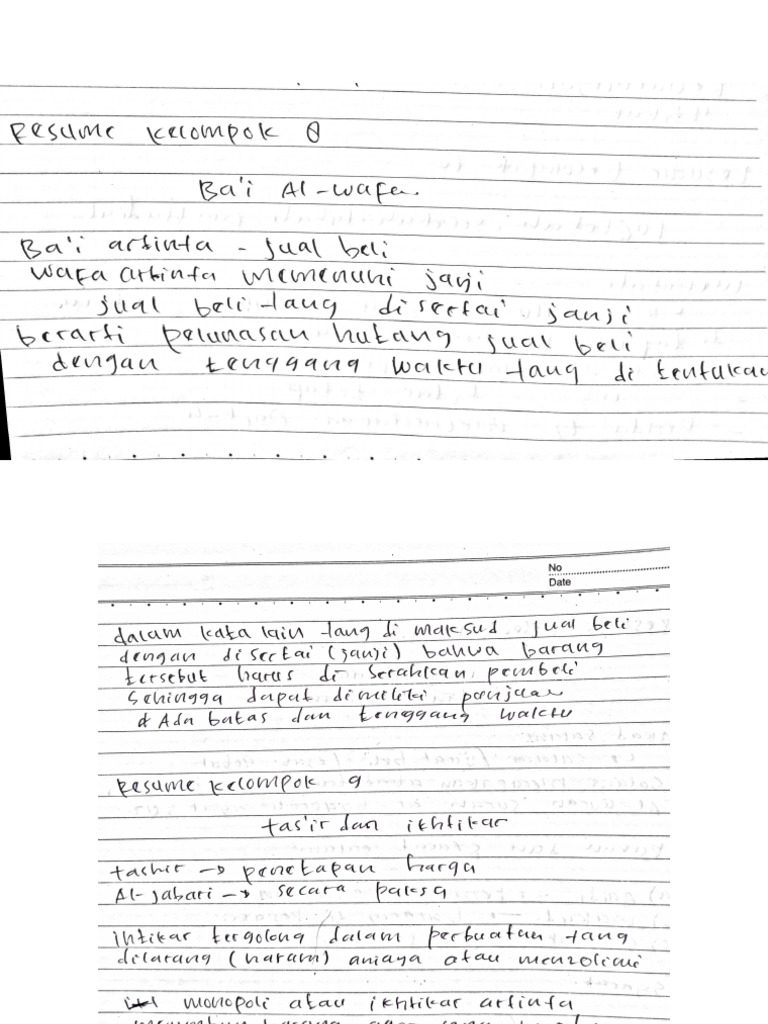 Resume kelompok 8
Ba'i Al-wafa.
Ba'i artinta - jual beli
wafa artinta memenuhi janji
jual beli tang disertai janji
berarti pelunasan hutang jual beli
dengan tenggang waktu tang di tentukan
No
Date
dalam kata lain tang di maksud jual beli
dengan disertai (janji) bahwa barang
tersebut harus di serahkan pembeli
sehingga dapat dimiliki penjual
& Ada batas dan tenggang waktu
Resume kelompok 9
tas'ir dan ikhtikar
tashir → penetapan harga
Al-jabari → secara paksa
ihtikar tergolong dalam perbuatan tang
dilarang (haram) aniaya atau menzolimi
monopoli atau ikhtikar artinta